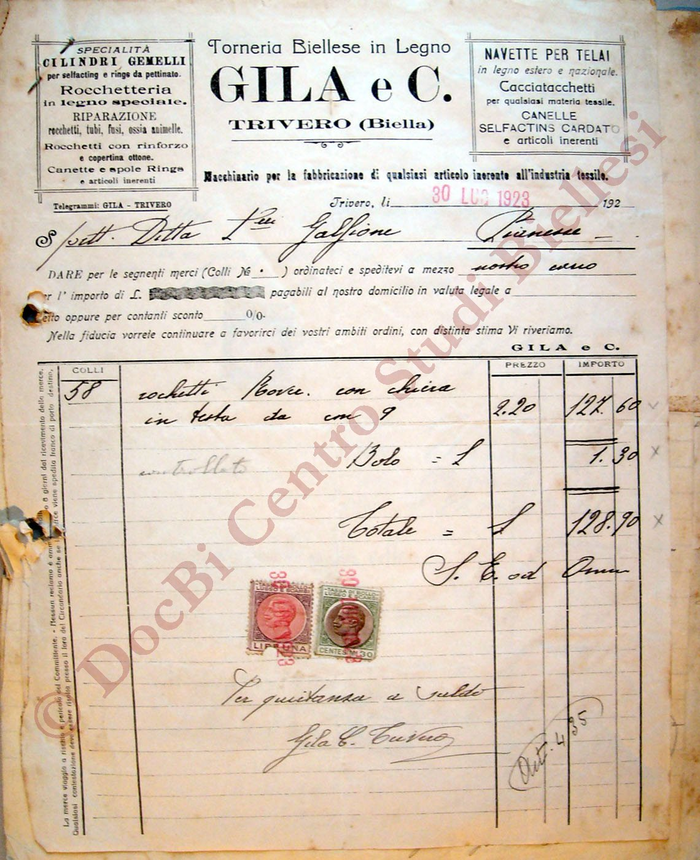 SPECIALITÀ
CILINDRI GEMELLI
per selfacting e rings da pettinato.
Rocchetteria
in legno speciale.
RIPARAZIONE
rocchetti, tubi, fusi, ossia animelle.
Rocchetti con rinforzo
e copertina ottone.
Canette e spole Rings
e articoli inerenti
Telegrammi: GILA - TRIVERO
Torneria Biellese in Legno
GILA e C.
TRIVERO (Biella)
NAVETTE PER TELAI
in legno estero e nazionale.
Cacciatacchetti
per qualsiasi materia tessile.
CANELLE
SELFACTINS CARDATO
e articoli inerenti
Macchinario per la fabbricazione di qualsiasi articolo inerente all'industria tessile.
Trivero, li 30 LUG 1923 192
Spett. Ditta Galfione
DARE per le seguenti merci (Colli N° · ) ordinateci e speditevi a mezzo nostro carro
per l'importo di L. pagabili al nostro domicilio in valuta legale a
netto oppure per contanti sconto 0/0-
Nella fiducia vorrete continuare a favorirci dei vostri ambiti ordini, con distinta stima Vi riveriamo.
GILA e C.
COLLI PREZZO IMPORTO
58 rochetti con
in testa da con 9 2.20 127.60
controllato
Bolo = L 1.30
Totale = L 128.90
S. E. od Omm
LIRE UNA
CENTESIMI 30
Per quietanza a saldo
Gila C. Trivero
Art. 435
La merce viaggia a rischio e pericolo del Committente. - Nessun reclamo è
© DocBi Centro Studi Biellesi